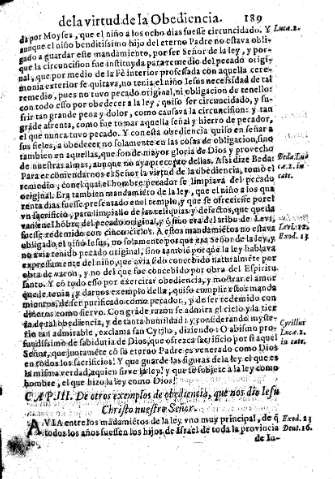 de la virtud de la Obediencia. 189
da por Moyses, que el niño a los ocho dias fuesse circuncidado. Y Luca. 2.
aunque el niño benditissimo hijo del eterno Padre no estava obli-
gado a guardar esse mandamiento, por ser Señor de la ley, y por-
que la circuncision fue instituyda para remedio del pecado origi-
nal, que por medio de la Fè interior professada con aquella cere-
monia exterior se quitava, no tenia el niño Iesus necessidad de tal
remedio, pues no tuvo pecado original, ni obligacion de tenello:
con todo esso por obedecer a la ley, quiso ser circuncidado, y su-
frir tan grande pena y dolor, como causava la circuncision: y tan
grade afrenta, como fue tomar aquella señal y hierro de pecador,
el que nunca tuvo pecado. Y con esta obediencia quiso enseñar a
sus fieles, a obedecer no solamente en las cosas de obligacion, sino
tambien en aquellas, que son de mayor gloria de Dios y provecho
de nuestras almas, aunque no aya precepto dellas. Assi dize Beda: Beda. Luc
Para encomendarnos el Señor la virtud de la obediencia, tomò el ca. 2. in
remedio, con el qual el hombre pecador se limpiava del pecado cate.
original. Era tambien mandamiento de la ley, que el niño a los qua
renta dias fuesse presentado en el templo, y que se ofreciesse por el
un sacrificio, para limpialle de las reliquias y defectos, que queda
van en el hõbre del pecado original, y sino era del tribu de Levi, Levi. 12.
fuesse redemido con cinco ciclos. A estos mandamiẽtos no estava Exod. 13
obligado el niño Iesus, no solamente porque era Señor de la ley, y
no tenia pecado original, sino tambiẽ porque la ley hablava
expressamente del niño, que avia sido concebido naturalmẽte por
obra de varon, y no del que fue concebido por obra del Espiritu
santo. Y cõ todo esso por exercitar obediencia, y mostrar el amor
que le tenia, y darnos exemplo della, quiso cumplir estos manda
mientos, de ser purificado como pecador, y de ser redemido con
dineros como siervo. Con grande razon se admira el cielo y la tier
ra de tal obediencia, y de tanta humildad: y considerando myste-
rio tan admirable, exclama san Cyrilo, diziendo: O abismo pro- Cyrillus
fundissimo de sabiduria de Dios, que ofrezca sacrificio por si aquel Luca. 2.
Señor, que juntamẽte cõ su eterno Padre es venerado como Dios in cate.
en todos los sacrificios! Y que guarde las figuras de la ley el que es
la misma verdad, a quien sirve la ley! Y que se subjete a la ley como
hombre, el que hizo la ley como Dios!
CAP. III. De otros exemplos de obediencia, que nos dio Iesu
Christo nuestro Señor.
AVIA entre los mãdamiẽtos de la ley, vno muy principal, de q̃ Exod. 23
todos los años fuessen los hijos de Israel de toda la provincia Deut. 16.
de Iu-